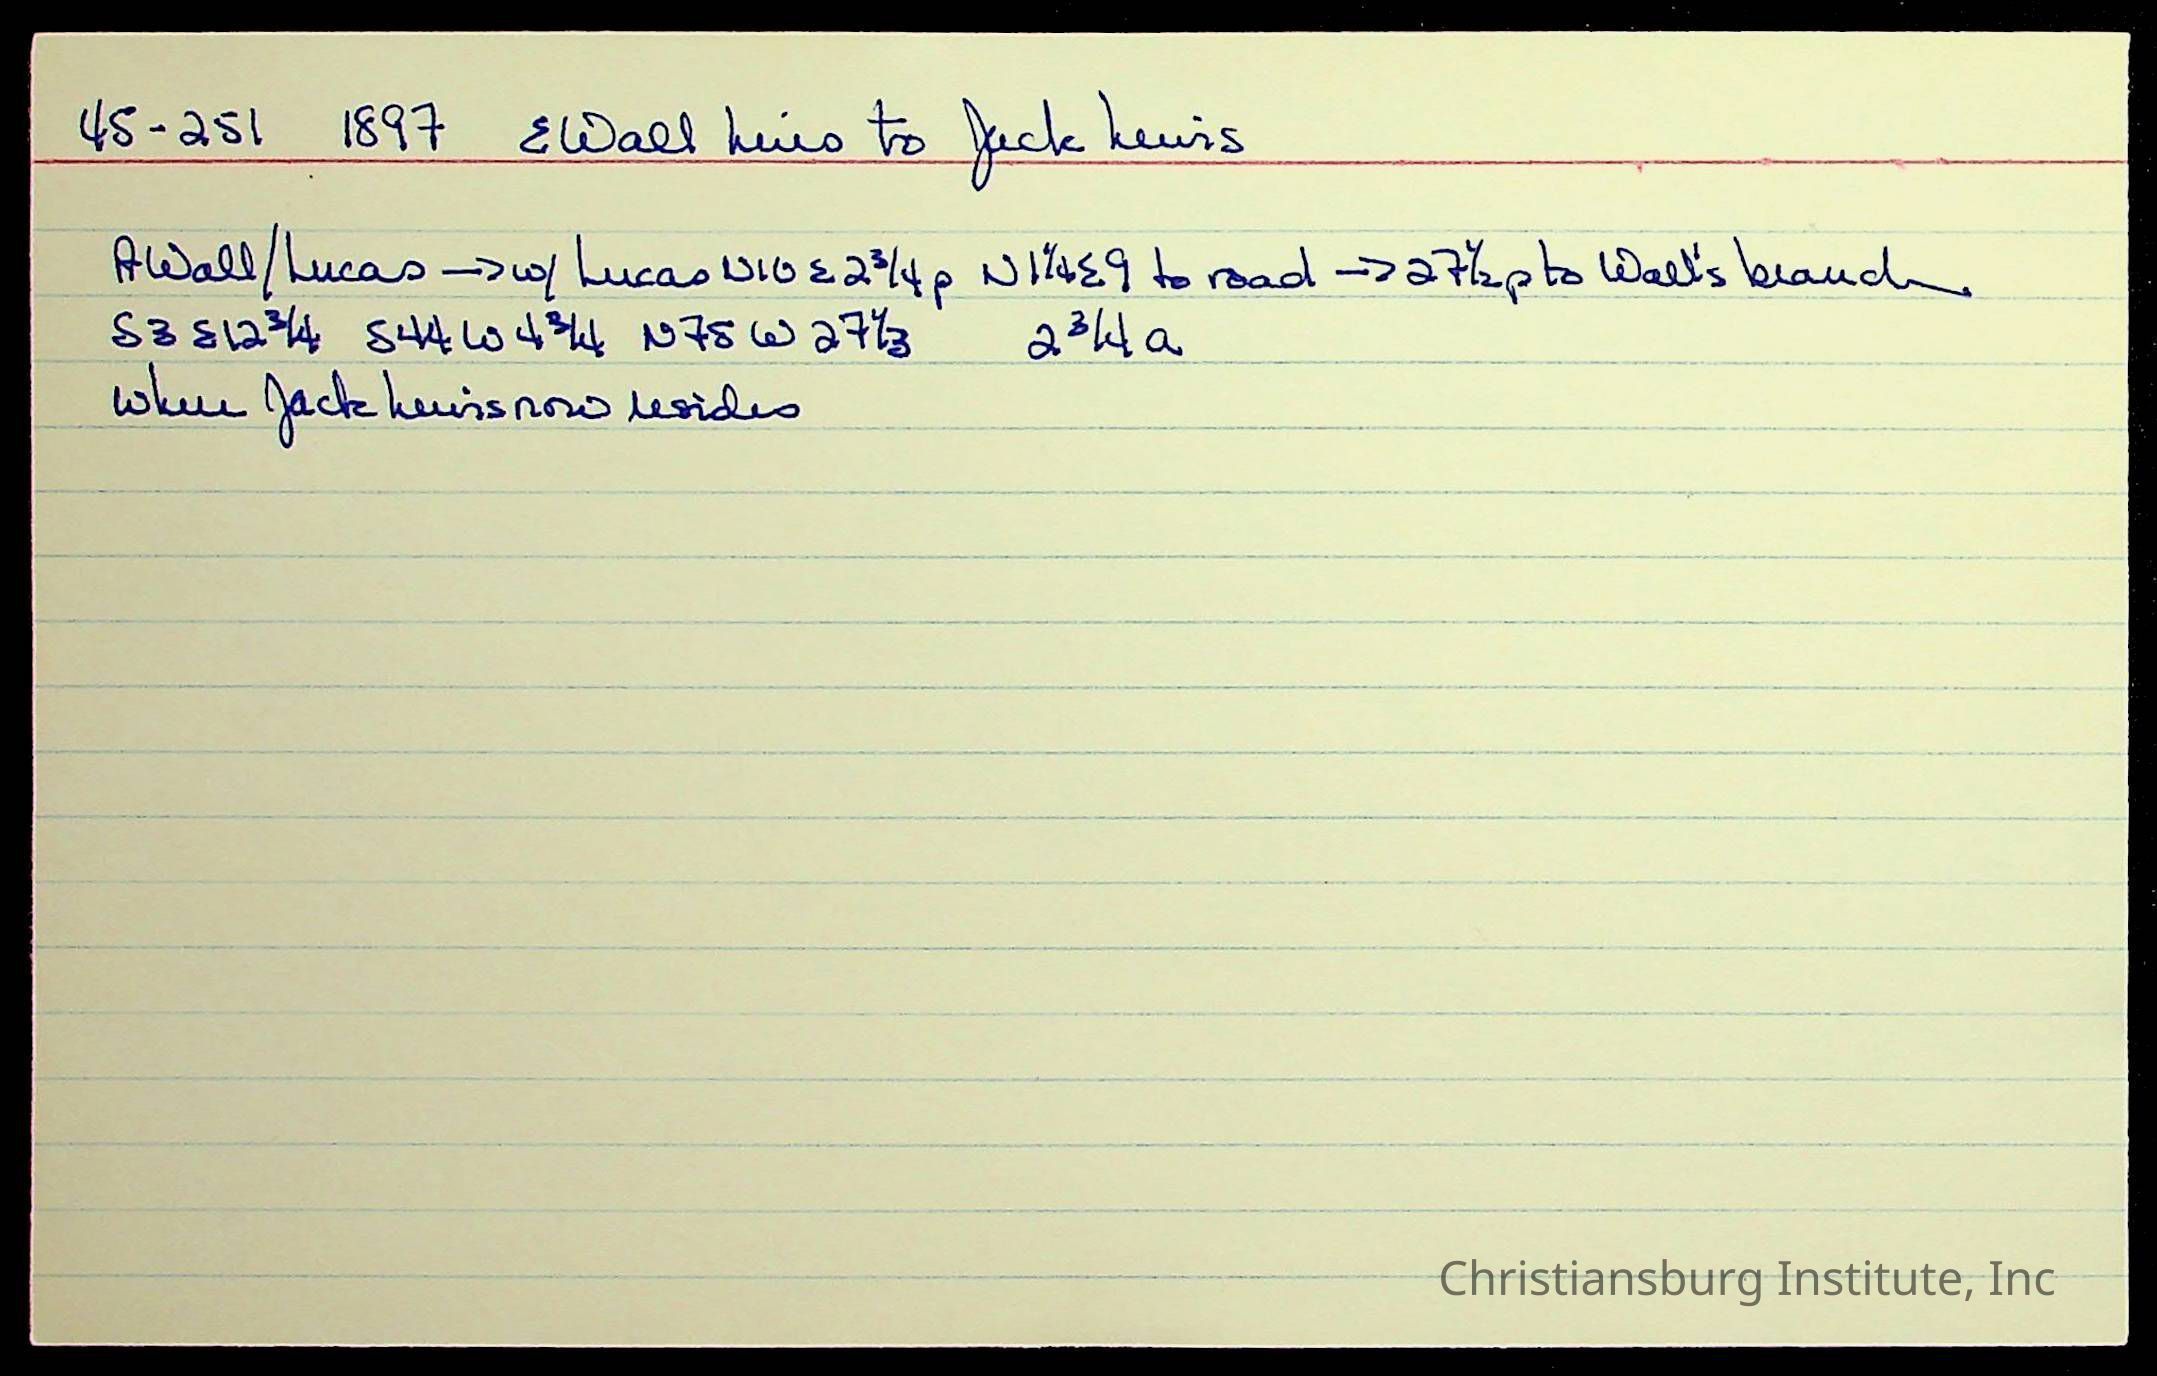 45-251 1897 E Wall heirs to Jack Lewis
A Wall/Lucas → w/ Lucas N10 E 2 3/4 p N 1 1/4 E 9 to road → 27 1/2 p to Wall's branch
S3 E 12 3/4 S44 W 4 3/4 N75 W 27 1/3 2 3/4 a
where Jack Lewis now resides
Christiansburg Institute, Inc